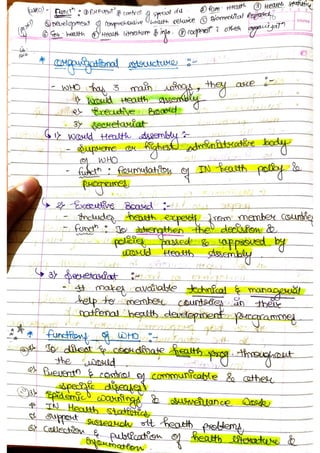 WHO:- Funcn :- ① Prevent & control of special dis ② Fam Health ③ Health statistics
④ Development of comprehensive health services ⑤ Biomedical Research
⑥ Env. health ⑦ Health literature & info.
* Organizational structure :-
- WHO has 3 main wings, they are :-
1) World Health Assembly
2) Executive Board
3) Secretariat
1) World Health Assembly :-
- Supreme or highest administrative body
of WHO
- Funcn : Formulation of IN health policy &
programes
2) Executive Board :-
- Includes health experts from member countries
- Funcn : To strengthen the decision &
policies passed & approved by
World Health Assembly
3) Secretariat :-
- It makes available technical & managerial
help to member countries in their
national health development programmes
* Functions of WHO :-
To direct & coordinate health prog throughout
the world
Prevent & control of communicable & other
specific diseases
Epidemic warnings & surveillance work
IN Health Statistics
Support research of health problems
Collection & publication of health literature &
information